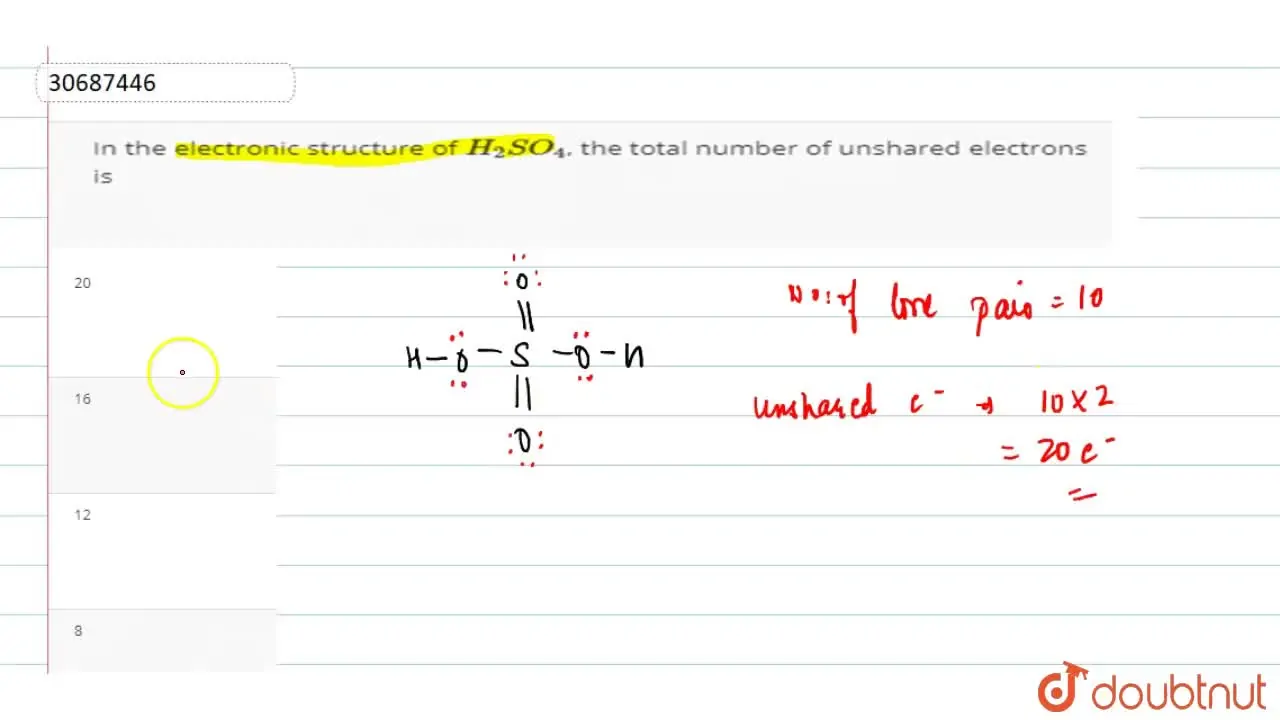 30687446
In the electronic structure of H₂SO₄, the total number of unshared electrons
is
20
16
12
8
O
H-O-S-O-H
O
No: of lone pair = 10
unshared e⁻ → 10 x 2
= 20 e⁻
doubtnut